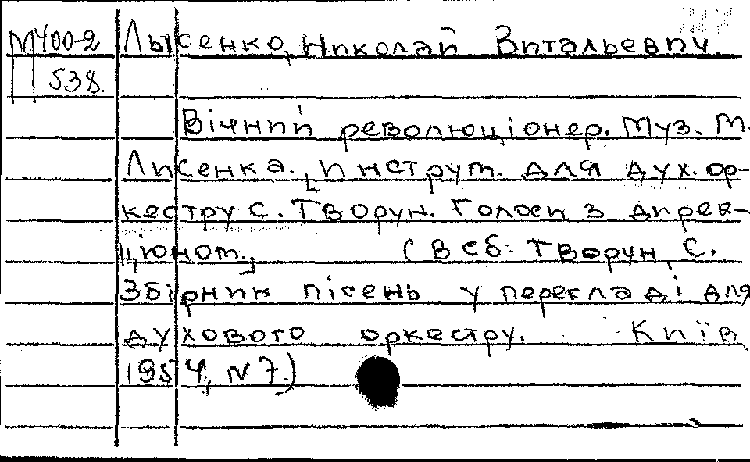 М400-2 Лысенко, Николай Витальевич.
538.
Вічний революціонер. Муз. М.
Лисенка. [Инструт. для дух. ор-
кестру С. Творун. Голоси з дирек-
ціоном.] (В сб: Творун, С.
Збірник пісень у перекладі для
духового оркестру. Київ,
1954, N 7.)